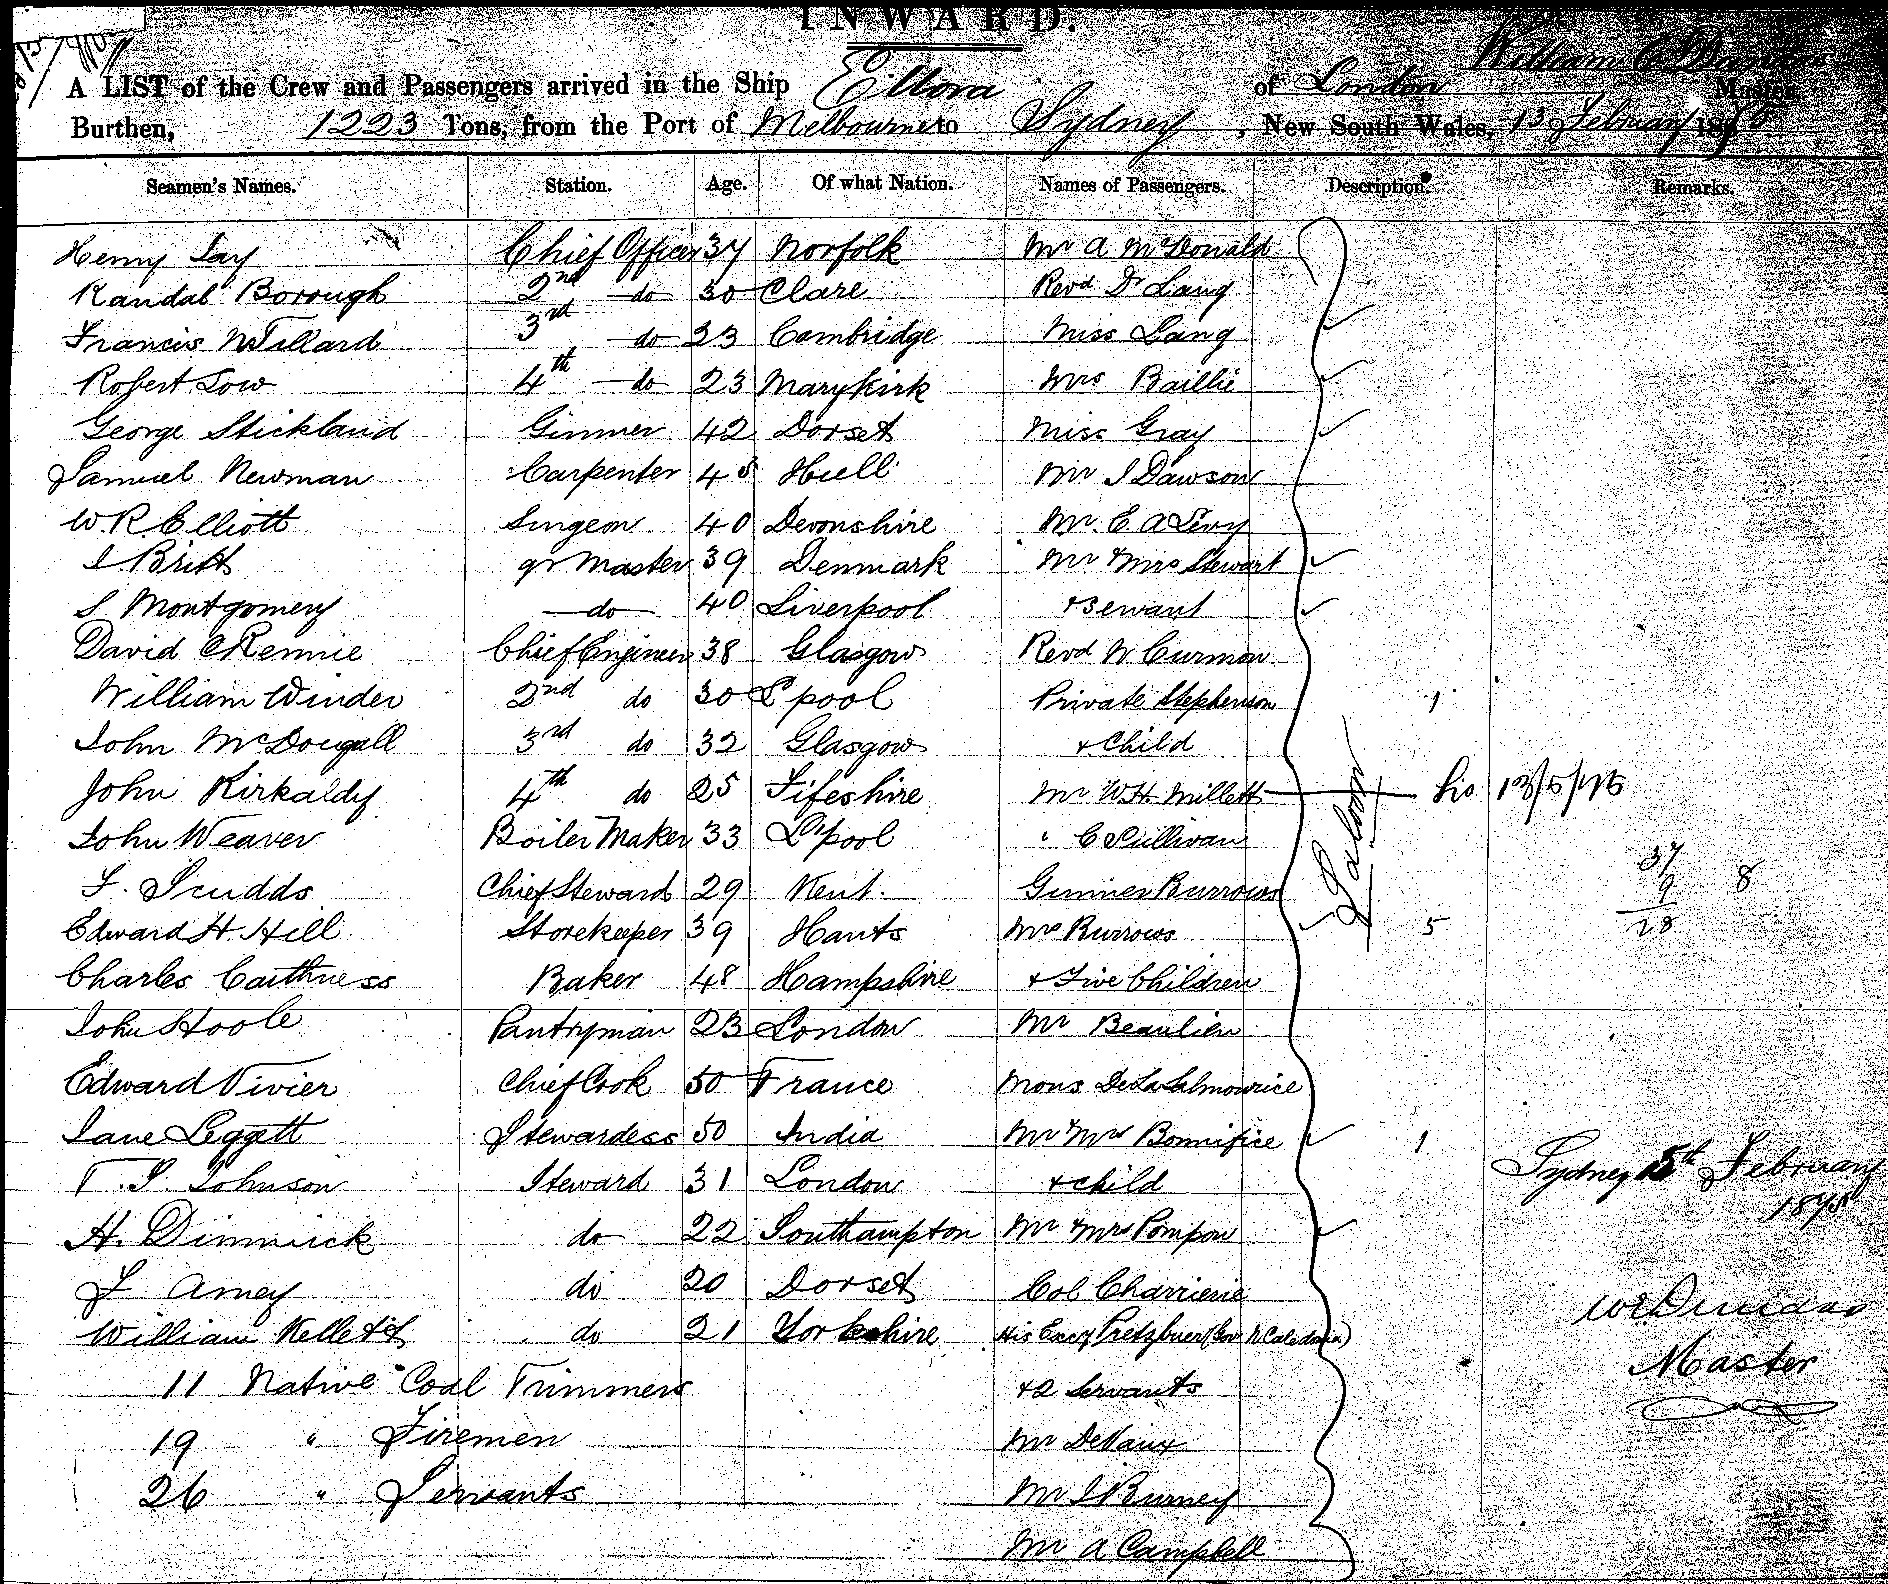 INWARD.
A LIST of the Crew and Passengers arrived in the Ship Ellora of London William Master
Burthen, 1223 Tons, from the Port of Melbourne to Sydney, New South Wales, 13 February 187
Seamen's Names. Station. Age. Of what Nation. Names of Passengers. Description. Remarks.
Henry Day Chief Officer 37 Norfolk Mr A McDonald
Randal Borough 2nd do 30 Clare Revd Dr Lang
Francis W Tillard 3rd do 23 Cambridge Miss Lang
Robert Low 4th do 23 Marykirk Mrs Baillie
George Stickland Gunner 42 Dorset Miss Gray
Samuel Newman Carpenter 45 Hull Mr J Dawson
W.R. Elliott Surgeon 40 Devonshire Mr. E A Levy
J Britt qr Master 39 Denmark Mr Mrs Stewart
S Montgomery do 40 Liverpool + Servant
David C Rennie Chief Engineer 38 Glasgow Revd W Curmow
William Winder 2nd do 30 L'pool Private Stephenson 1
John McDougall 3rd do 32 Glasgow + Child
John Kirkaldy 4th do 25 Fifeshire Mr W.H. Millett
John Weaver Boiler Maker 33 L'pool " C Sullivan Saloon
F. Scudds Chief Steward 29 Kent Gunner Burrows 37 9 8
Edward H. Hill Storekeeper 39 Hants Mrs Burrows 5 28
Charles Caithness Baker 48 Hampshire + Five Children
John Hoole Pantryman 23 London Mr Beaulieu
Edward Vivier Chief Cook 50 France Mons
Jane Leggett Stewardess 50 India Mr Mrs Bonnifice 1
T. S. Johnson Steward 31 London + child Sydney 15th February 1875
H. Dimmick do 22 Southampton Mr Mrs Pompon
F Amey do 20 Dorset Col Charriere
William Kellett do 21 Yorkshire His Excy Pretzbuer (Gov N Caledonia)
11 Native Coal Trimmers + 2 Servants Master
19 " Firemen Mr DeVaux
26 " Servants Mr J Burney
Mr A Campbell